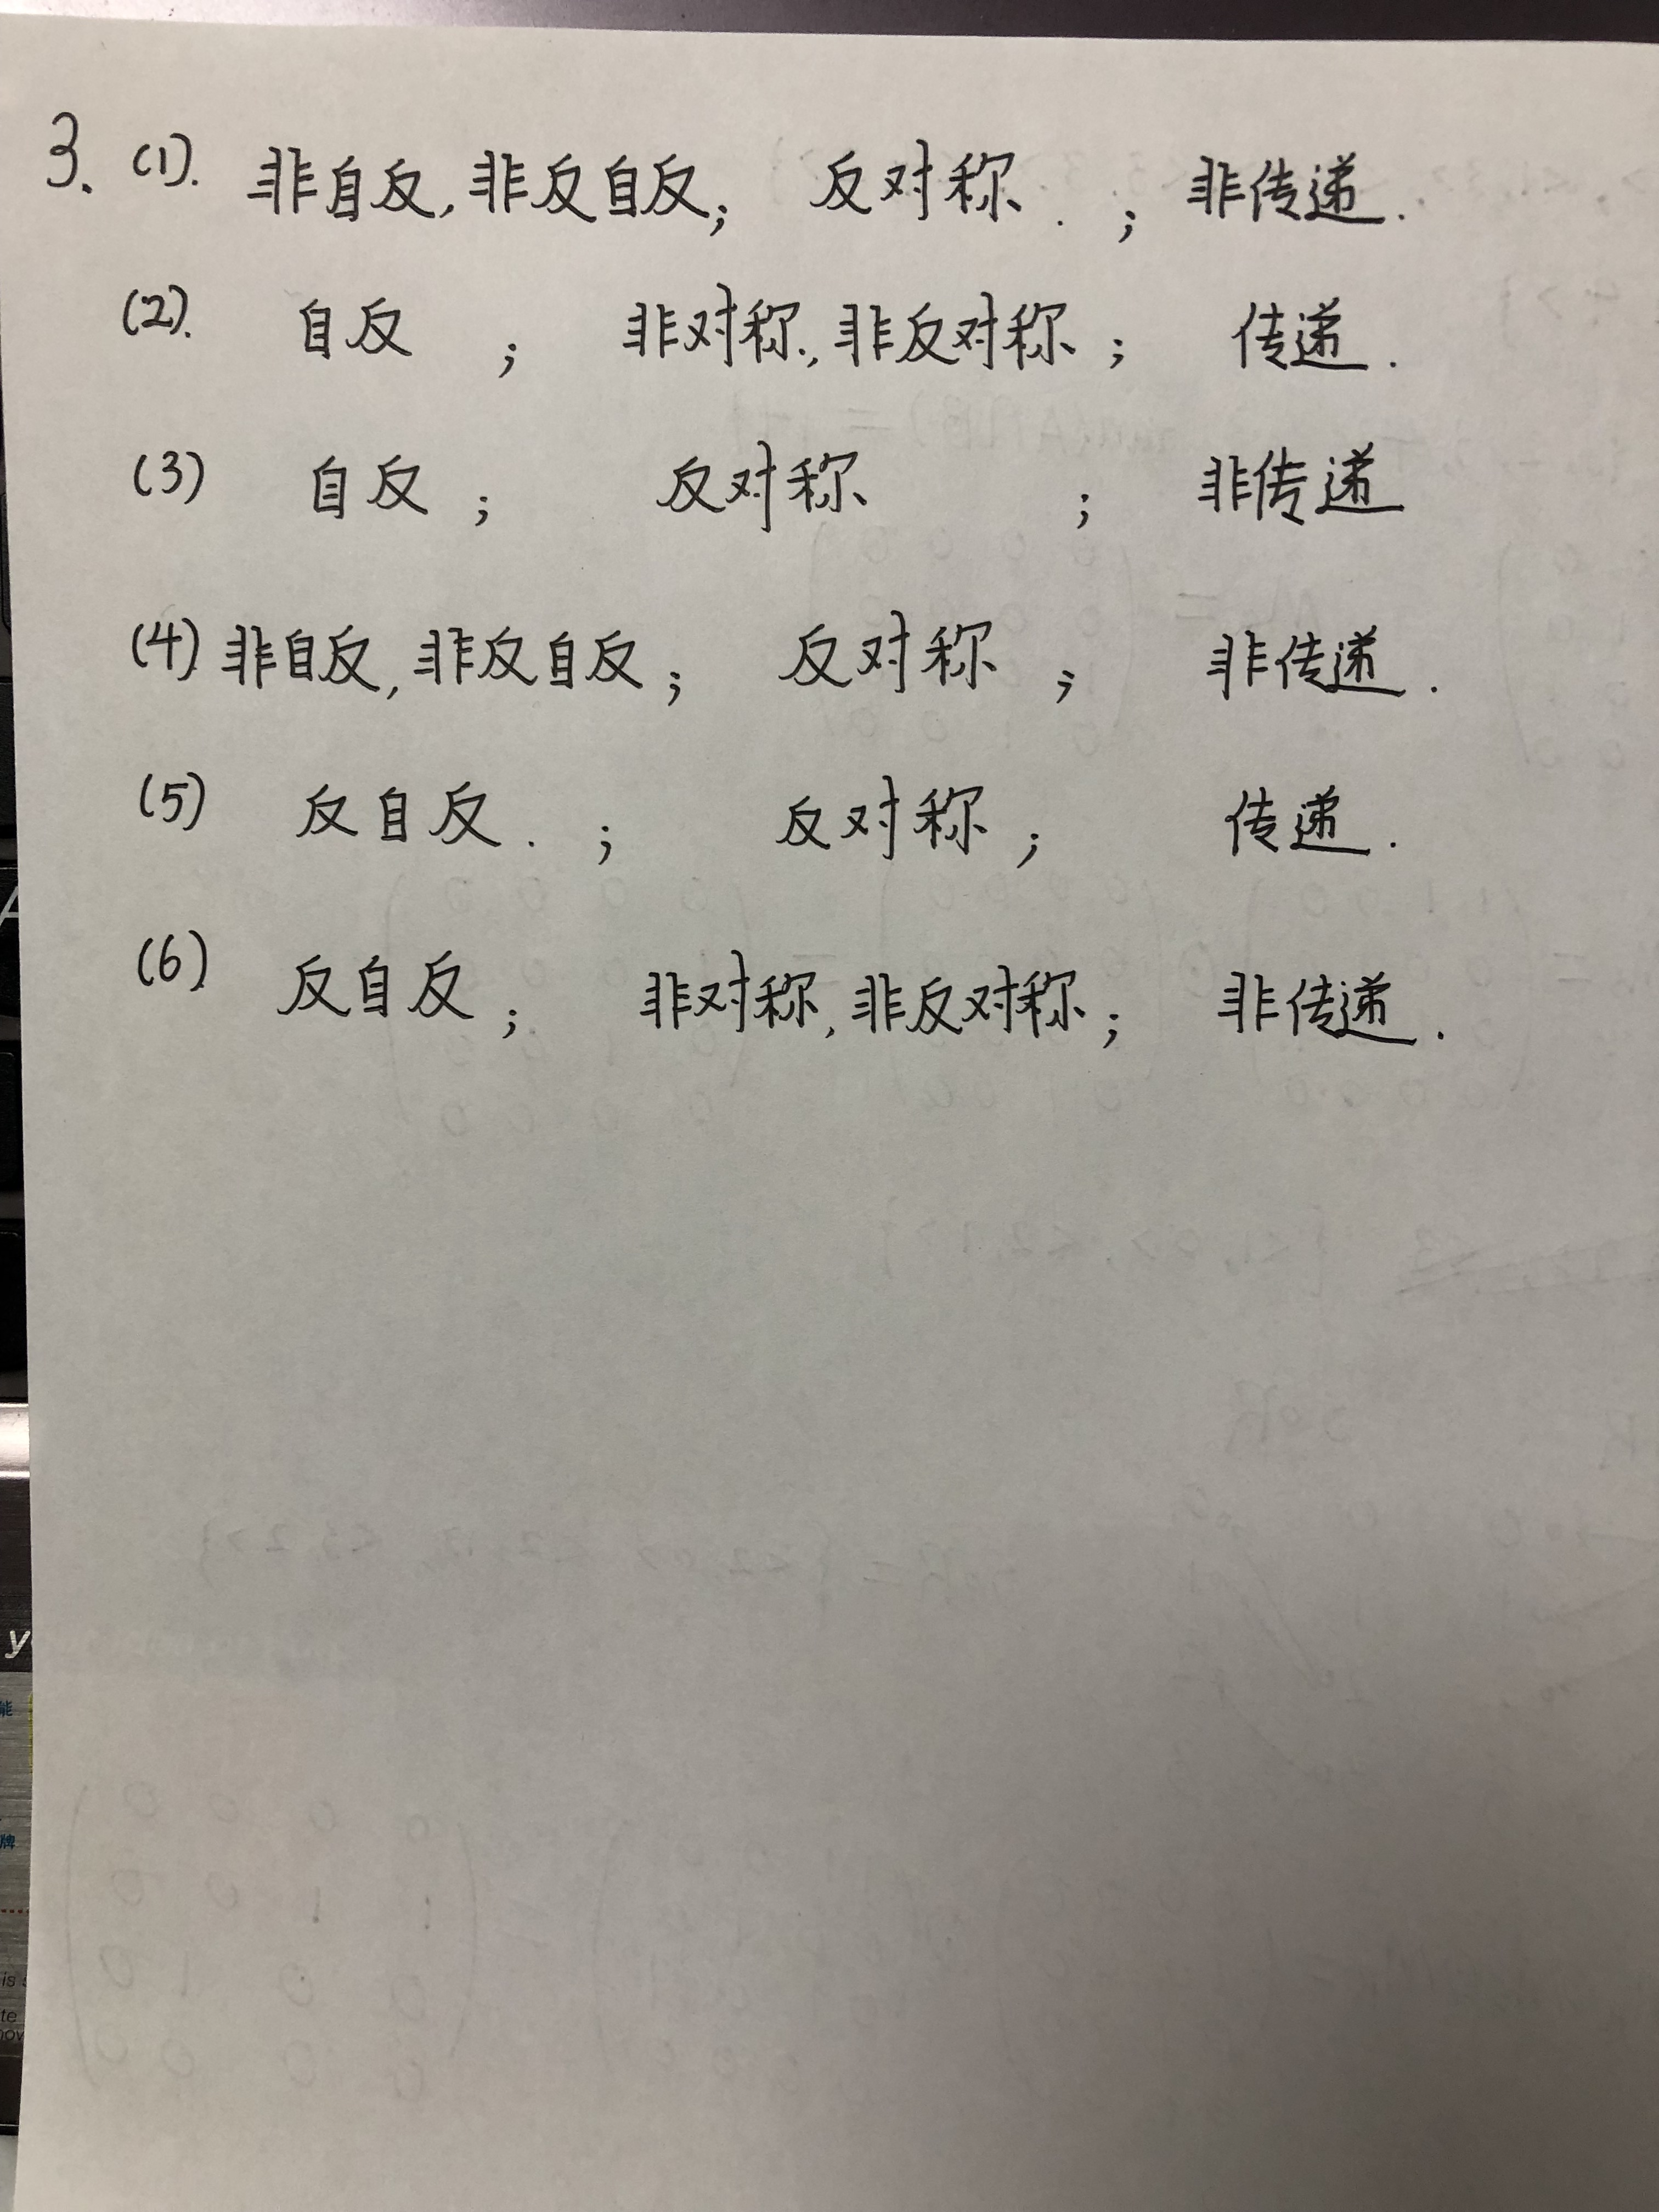 3. (1). 非自反, 非反自反; 反对称. ; 非传递.
(2). 自反 ; 非对称., 非反对称 ; 传递.
(3) 自反 ; 反对称 ; 非传递
(4) 非自反, 非反自反 ; 反对称 ; 非传递.
(5) 反自反. ; 反对称 ; 传递.
(6) 反自反 ; 非对称, 非反对称 ; 非传递.